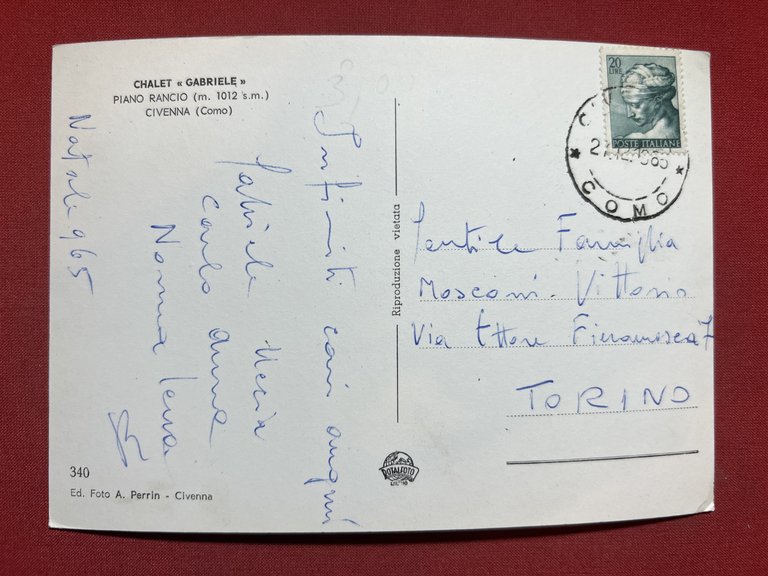 CHALET « GABRIELE »
PIANO RANCIO (m. 1012 s.m.)
CIVENNA (Como)
Natale 965
Infiniti cari auguri
Gabriele
Carlo Anna
Nonna
340
Ed. Foto A. Perrin - Civenna
Riproduzione vietata
ROTALFOTO
20
LIRE
POSTE ITALIANE
COMO
Gentile Famiglia
Mosconi. Vittorio
Via Ettore Fieramosca 7
TORINO